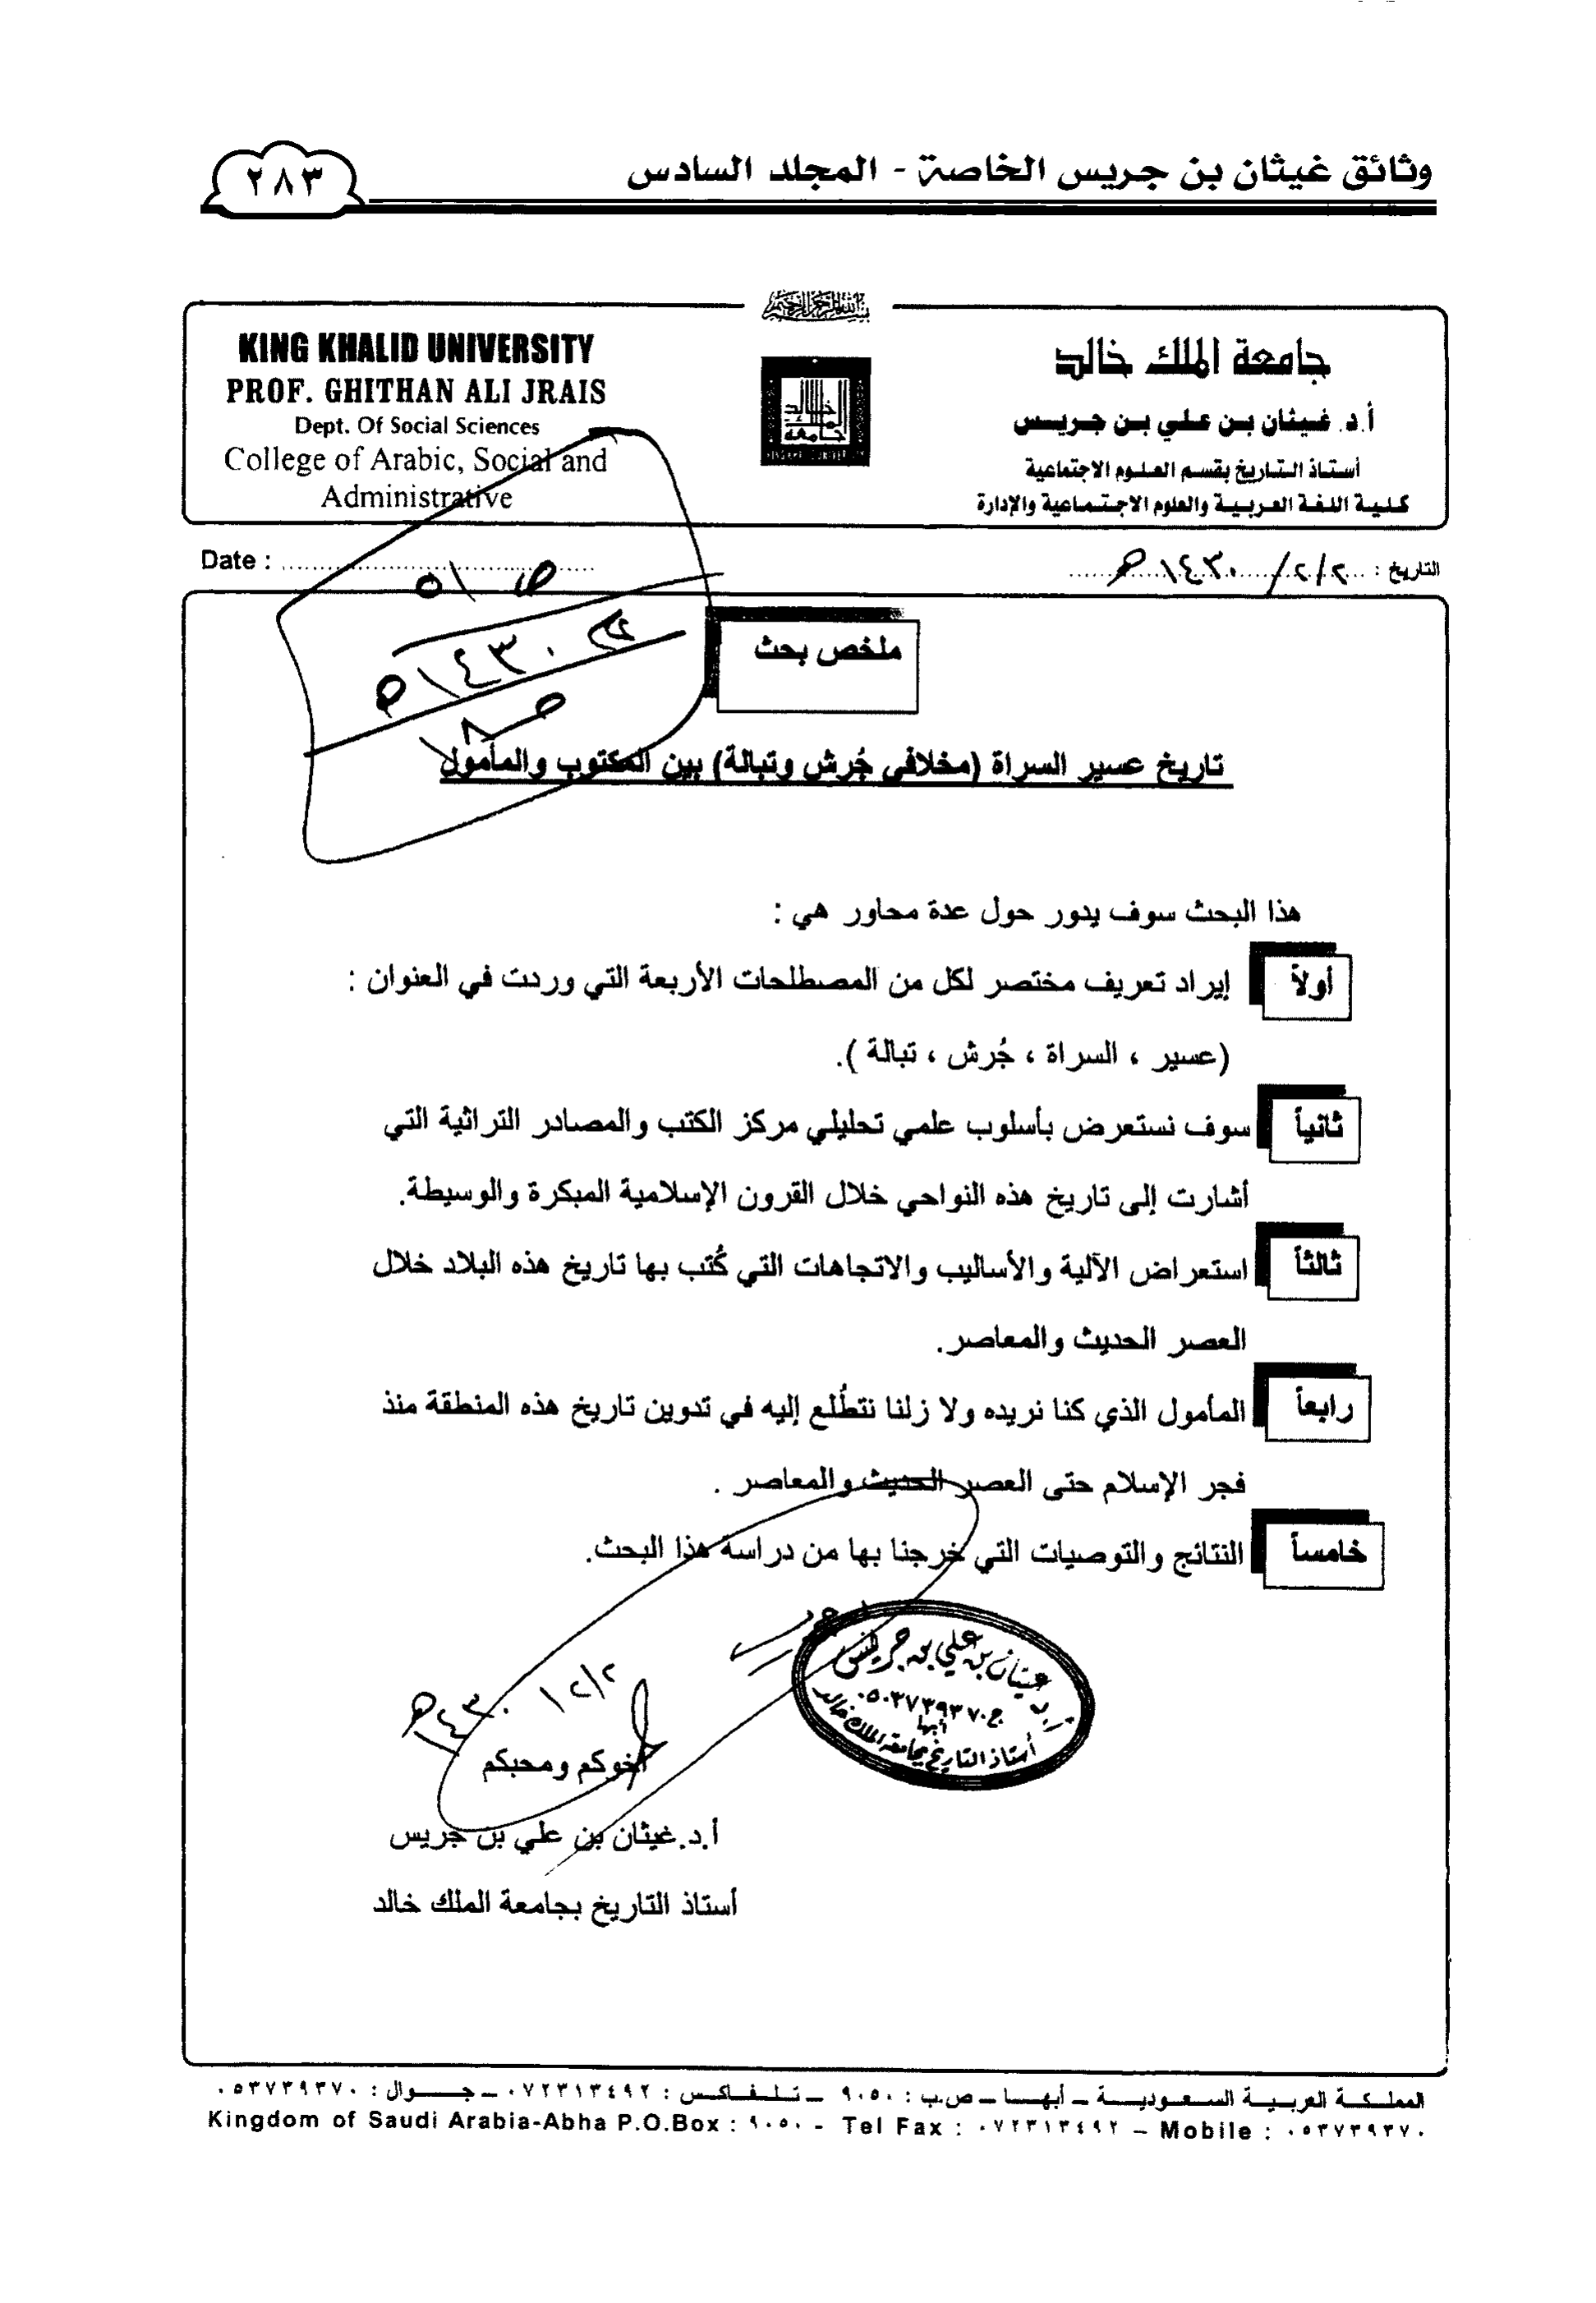 وثائق غيثان بن جريس الخاصة - المجلد السادس
٢٨٣
بسم الله الرحمن الرحيم
KING KHALID UNIVERSITY
PROF. GHITHAN ALI JRAIS
Dept. Of Social Sciences
College of Arabic, Social and
Administrative
جامعة الملك خالد
أ.د. غيثان بن علي بن جريس
أستاذ التاريخ بقسم العلوم الاجتماعية
كلية اللغة العربية والعلوم الاجتماعية والإدارة
التاريخ : ٢/٢/١٤٣٠هـ
Date :
ص ٥١
١٤٣٠هـ
ملخص بحث
تاريخ عسير السراة (مخلافي جُرش وتبالة) بين المكتوب والمأمول
هذا البحث سوف يدور حول عدة محاور هي :
أولاً إيراد تعريف مختصر لكل من المصطلحات الأربعة التي وردت في العنوان :
(عسير ، السراة ، جُرش ، تبالة ).
ثانياً سوف نستعرض بأسلوب علمي تحليلي مركز الكتب والمصادر التراثية التي
أشارت إلى تاريخ هذه النواحي خلال القرون الإسلامية المبكرة والوسيطة.
ثالثاً استعراض الآلية والأساليب والاتجاهات التي كُتب بها تاريخ هذه البلاد خلال
العصر الحديث والمعاصر.
رابعاً المأمول الذي كنا نريده ولا زلنا نتطُلع إليه في تدوين تاريخ هذه المنطقة منذ
فجر الإسلام حتى العصر الحديث والمعاصر .
خامساً النتائج والتوصيات التي خرجنا بها من دراسة هذا البحث.
أ.د غيثان بن علي بن جريس
ج ٠٥٠٣٧٣٩٣٧٠
أبها
أستاذ التاريخ بجامعة الملك خالد
٢/٢/١٤٣٠هـ
أخوكم ومحبكم
أ.د.غيثان بن علي بن جريس
أستاذ التاريخ بجامعة الملك خالد
المملكة العربية السعودية – أبها – ص.ب : ٩٠٥٠ – تلفاكس : ٠٧٢٣١٣٤٩٢ – جوال : ٠٥٣٧٣٩٣٧٠
Kingdom of Saudi Arabia-Abha P.O.Box : ٩٠٥٠ - Tel Fax : ٠٧٢٣١٣٤٩٢ – Mobile : ٠٥٣٧٣٩٣٧٠